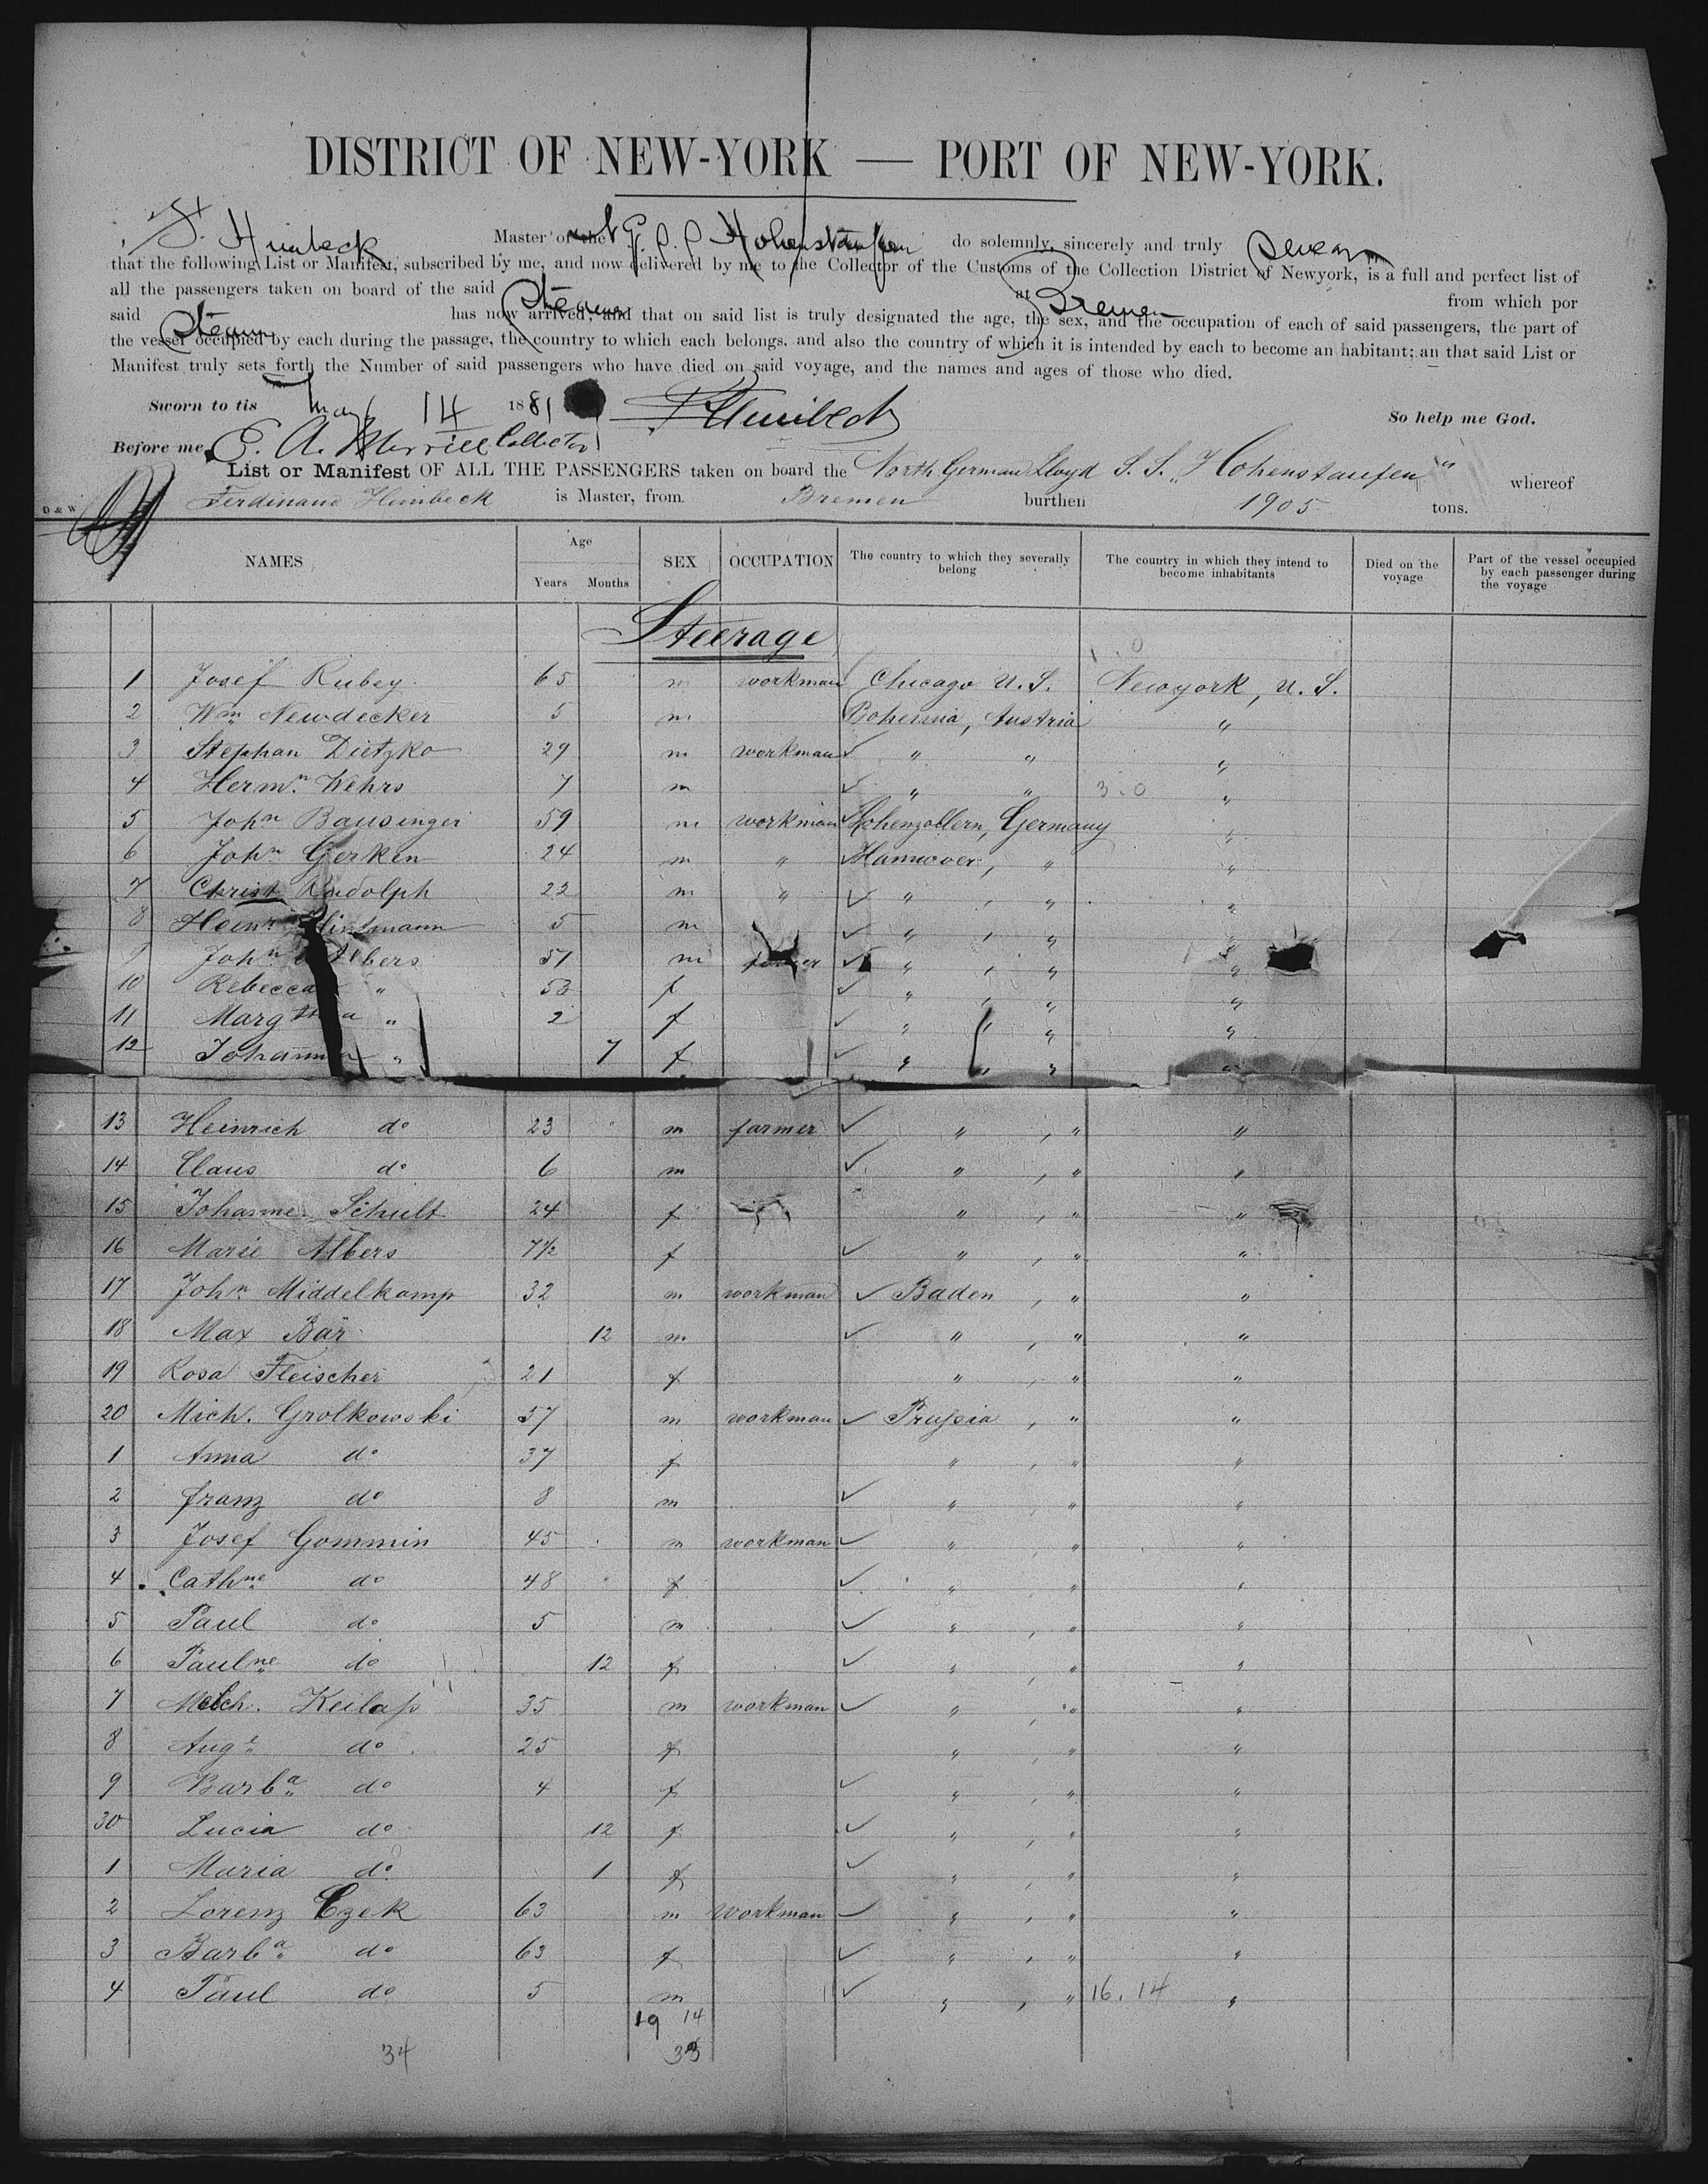 DISTRICT OF NEW-YORK — PORT OF NEW-YORK.
F. Himbeck Master of the N. G. S. S. Hohenstaufen do solemnly, sincerely and truly swear
that the following List or Manifest, subscribed by me, and now delivered by me to the Collector of the Customs of the Collection District of Newyork, is a full and perfect list of
all the passengers taken on board of the said Steamer at Bremen from which por
said Steamer has now arrived; and that on said list is truly designated the age, the sex, and the occupation of each of said passengers, the part of
the vessel occupied by each during the passage, the country to which each belongs, and also the country of which it is intended by each to become an habitant; an that said List or
Manifest truly sets forth the Number of said passengers who have died on said voyage, and the names and ages of those who died.
Sworn to tis May 14 1881 F Himbeck So help me God.
Before me E. A. Merrill Collector
List or Manifest OF ALL THE PASSENGERS taken on board the North German Lloyd S. S. „Hohenstaufen" whereof
D & W Ferdinand Himbeck is Master, from Bremen burthen 1905 tons.
NAMES Age Years Months SEX OCCUPATION The country to which they severally belong The country in which they intend to become inhabitants Died on the voyage Part of the vessel occupied by each passenger during the voyage
Steerage
1 Josef Rubey 65 m workman Chicago U. S. Newyork, U. S.
2 Wm Newdecker 5 m Bohemia, Austria "
3 Stephan Dietzko 29 m workman ✓ " " "
4 Hermn. Wehrs 7 m ✓ " " 3.0 "
5 John Bausinger 59 m workman ✓ Hohenzollern, Germany "
6 John Gerken 24 m " ✓ Hannover, " "
7 Christ Rudolph 22 m " ✓ " , " "
8 Heinr. 5 m ✓ " , " "
9 John Albers 51 m farmer ✓ " , " "
10 Rebecca " 53 f ✓ " , " "
11 Margtha " 2 f ✓ " , " "
12 Johanna " 7 f ✓ " , " "
13 Heinrich do 23 m farmer ✓ " , " "
14 Claus do 6 m ✓ " , " "
15 Johanne Schult 24 f " , " "
16 Marie Albers 7½ f ✓ " , " "
17 John Middelkamp 32 m workman ✓ Baden , " "
18 Max Bär 12 m ✓ " , " "
19 Rosa Fleischer 21 f " , " "
20 Mich. Grolkowski 37 m workman ✓ Prussia , " "
1 Anna do 37 f " , " "
2 franz do 8 m ✓ " , " "
3 Josef Gommin 45 m workman ✓ " , " "
4 Cathne do 48 f ✓ " " "
5 Paul do 5 m ✓ " , " "
6 Paulne do 12 f ✓ " , " "
7 Melch. Keilass 35 m workman ✓ " , " "
8 Auge do 25 f " , " "
9 Barba do 4 f ✓ " , " "
30 Lucia do 12 f ✓ " , " "
1 Maria do 1 f ✓ " , " "
2 Lorenz Czek 63 m workman ✓ " , " "
3 Barba do 63 f ✓ " , " "
4 Paul do 5 m ✓ " , " 16.14 "
19 14
34 33